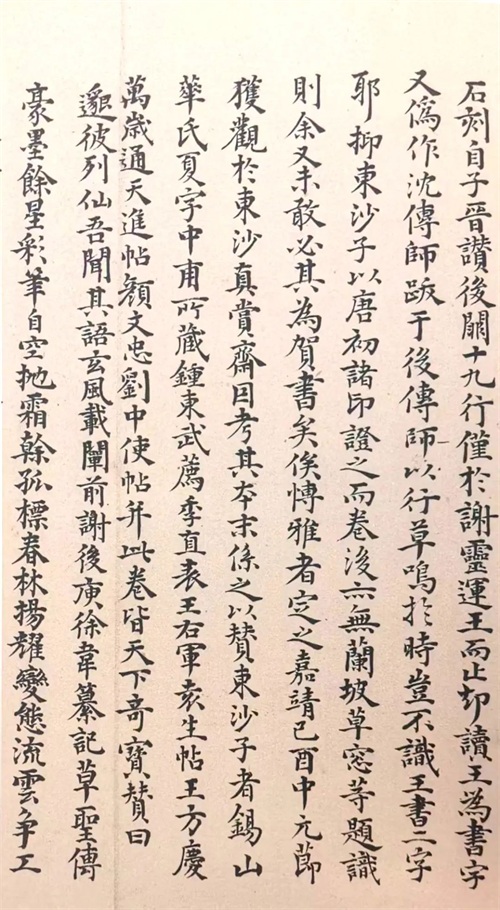 石刻自子晉讚後闕十九行僅於謝靈運王而止却讀王為書字
又偽作沈傳師跋于後傳師以行草鳴於時豈不識王書二字
耶抑東沙子以唐初諸印證之而卷後亦無蘭坡草窓等題識
則余又未敢必其為賀書矣俟博雅者定之嘉靖己酉中元節
獲觀於東沙真賞齋因考其本末係之以贊東沙子者錫山
華氏夏字中甫所藏鍾東武薦季直表王右軍袁生帖王方慶
萬歲通天進帖顏文忠劉中使帖并此卷皆天下奇寶贊曰
邈彼列仙吾聞其語玄風載闡前謝後庾徐韋纂記草聖傳
豪墨餘星彩筆自空拋霜榦孤標春林揚耀變態流雲争工